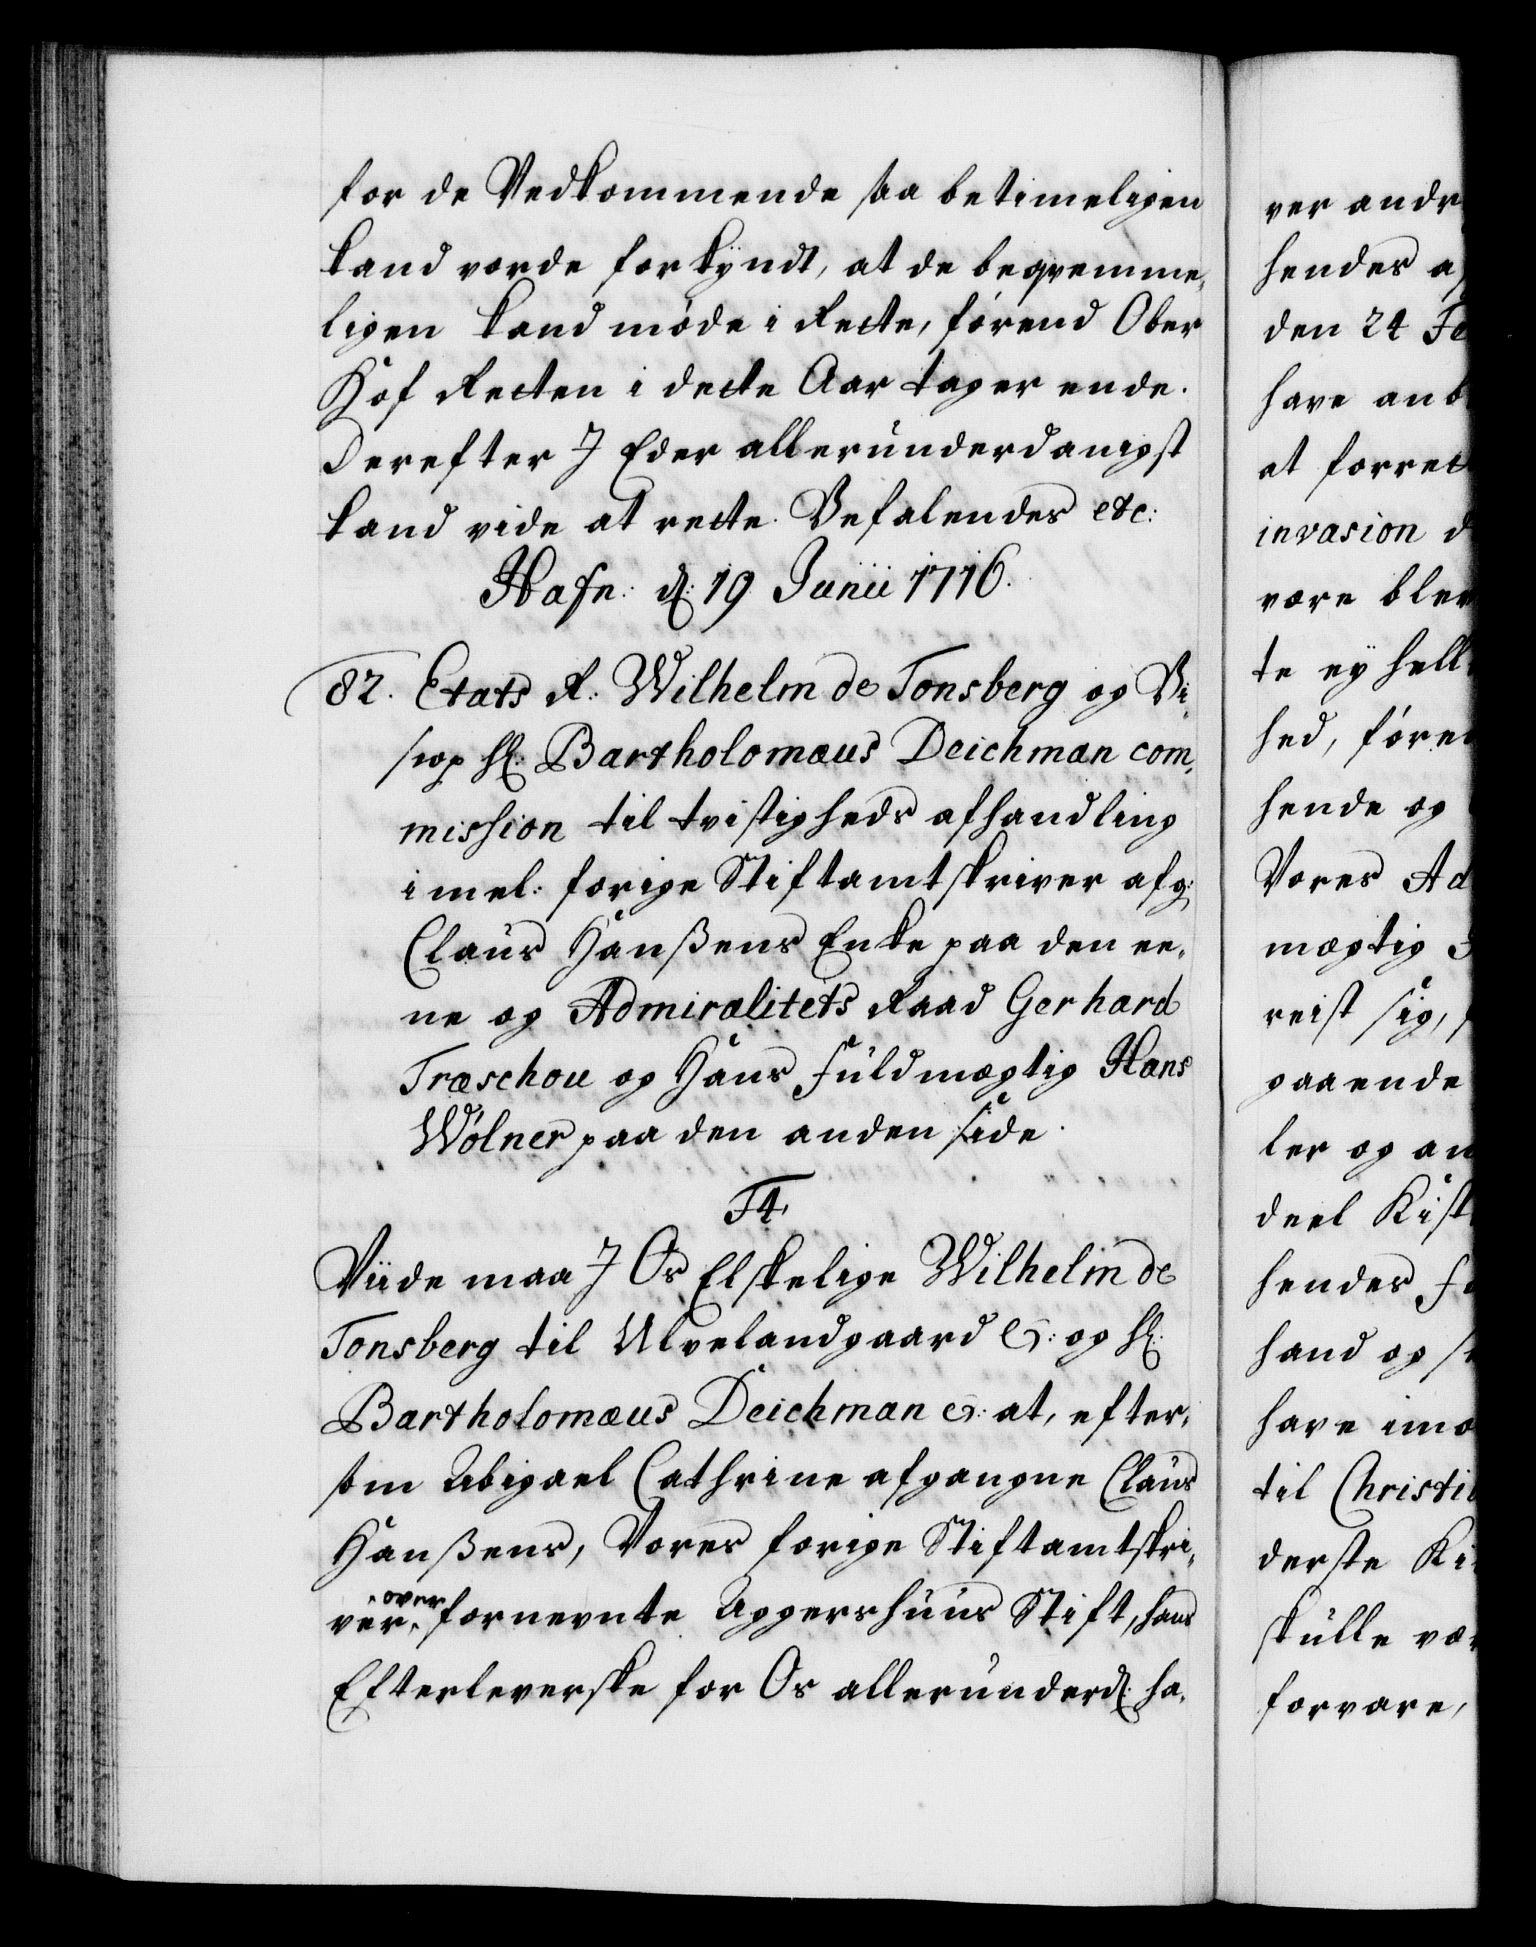 for de Vedkommende saa betimeligen
kand vorde forkyndt, at de beqvemme,
ligen kand møde i Rette, førend Ober
Hof Retten i dette Aar tager ende.
Derefter I Eder allerunderdanigst
kand vide at rette. Befalendes etc:
Hafn: d: 19 Junii 1716.
82. Etats R: Wilhelm de Tonsberg og Bi,
scop H: Bartholomæus Deichman com,
mission til tvistigheds afhandling
imel: forige Stiftamtskriver afg:
Claus Hanßens Enke paa den ee,
ne og Admiralitets Raad Gerhard
Træschou og Hans Fuldmægtig Hans
Wølner paa den anden side.
F4.
Viide maa I Os Elskelige Wilhelm de
Tonsberg til Ulvelandgaard &: og H:
Bartholomæus Deichman &: at, efter,
som Abigael Cathrine afgangne Claus
Hanßens, Vores forige Stiftamtskri,
ver over fornevnte Aggershuus Stift, hans
Efterleverske for Os allerunderd: ha,
ver andr
hendes a
den 24 Fe
have anb
at forret
invasion d
være blev
te ey hell
hed, føren
hende og
Vores Ad
mægtig
reist sig,
gaaende
ler og an
deel Kist
hendes f
hand og s
have imo
til Christi
derste Ki
skulle væ
forvare,